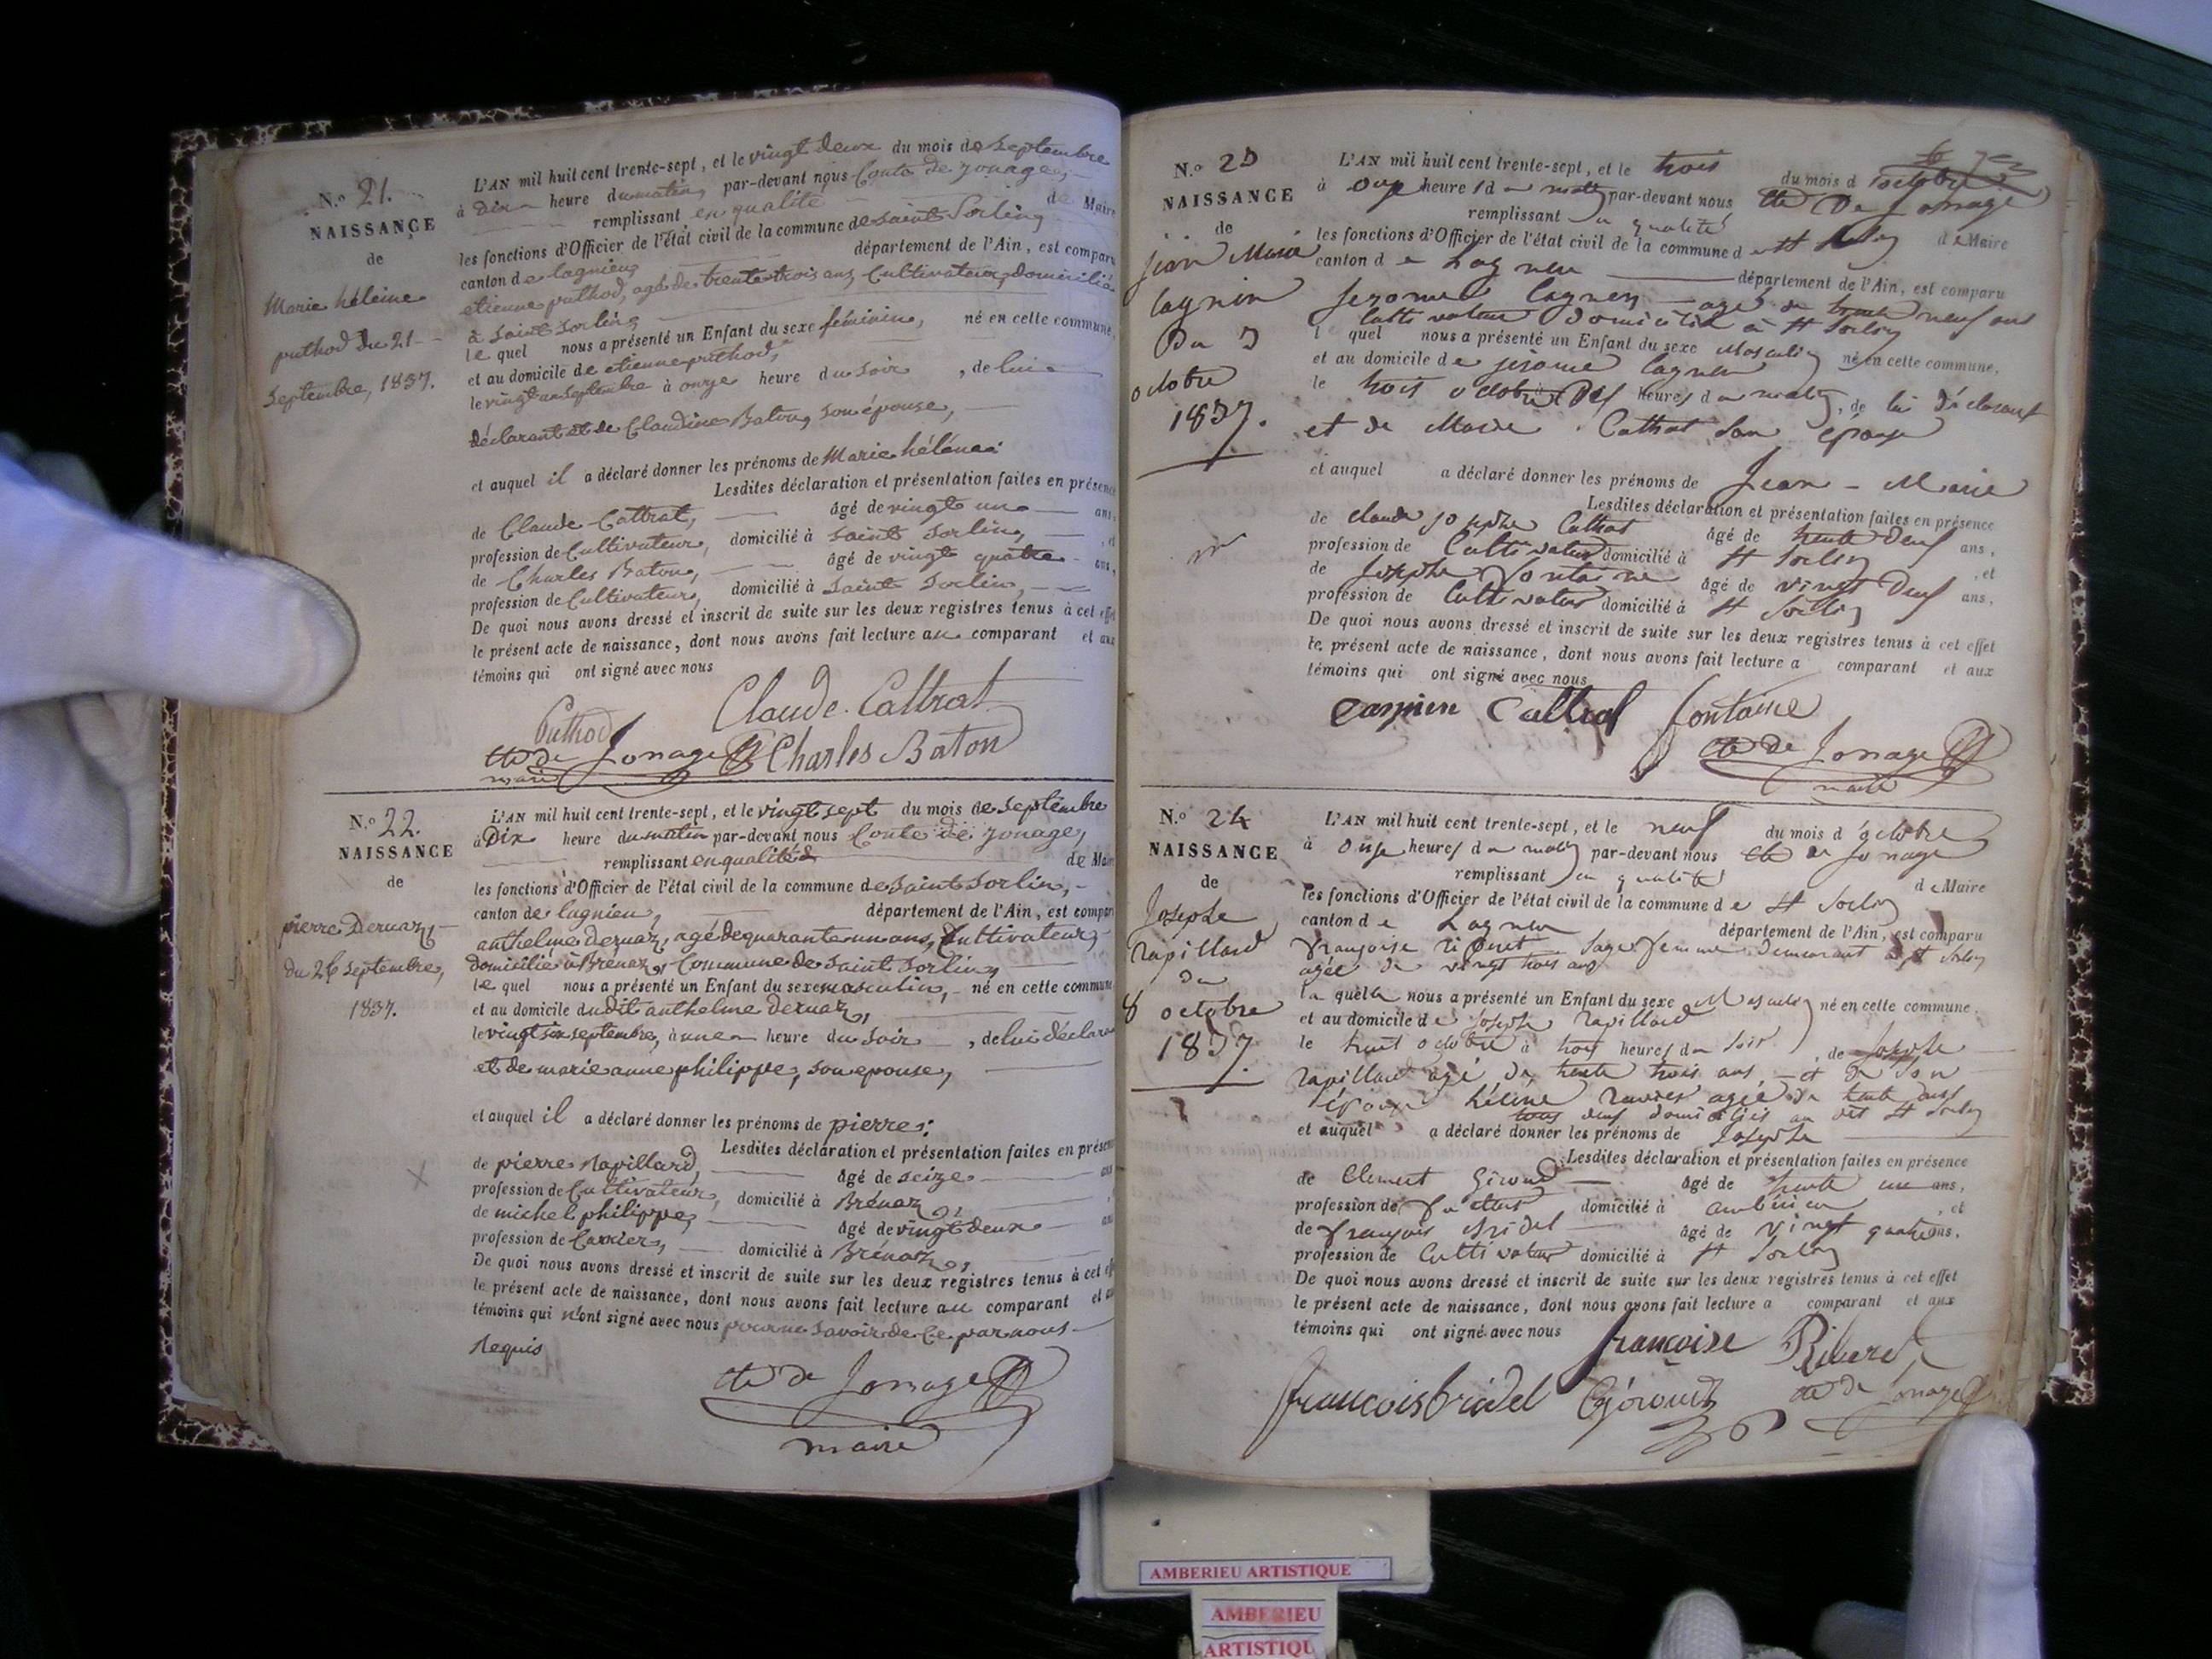 N.o 21.
NAISSANCE
de
Marie héleine
puthod du 21
septembre, 1837.
L'AN mil huit cent trente-sept, et le vingt deux du mois de septembre
à dix heure du matin, par-devant nous Conte de jonage,
remplissant en qualité de Maire
les fonctions d'Officier de l'état civil de la commune de saint Sorlin
canton de lagnieu, département de l'Ain, est comparu
etienne puthod, agé de trente trois ans, Cultivateur, domicilié
à saint Sorlin,
le quel nous a présenté un Enfant du sexe féminin, né en cette commune,
et au domicile de etienne puthod,
le vingt un septembre à onze heure du soir, de lui
déclarant et de Claudine Baton, son épouse,
et auquel il a déclaré donner les prénoms de Marie héléne
Lesdites déclaration et présentation faites en présence
de Claude Cattrat, âgé de vingt un ans,
profession de Cultivateur, domicilié à saint Sorlin, et
de Charles Baton, âgé de vingt quatre ans,
profession de Cultivateur, domicilié à Saint Sorlin,
De quoi nous avons dressé et inscrit de suite sur les deux registres tenus à cet effet
le présent acte de naissance, dont nous avons fait lecture au comparant et aux
témoins qui ont signé avec nous
Puthod Claude Cattrat
cte de Jonage Charles Baton
maire
N.o 22.
NAISSANCE
de
pierre Dernaz,
du 26 septembre,
1837.
L'AN mil huit cent trente-sept, et le vingt sept du mois de septembre
à Dix heure du matin par-devant nous Conte de jonage,
remplissant en qualité de Maire
les fonctions d'Officier de l'état civil de la commune de saint Sorlin,
canton de lagnieu, département de l'Ain, est comparu
anthelme dernaz, agé de quarante un ans, Cultivateur,
domicilié à Brénaz, Commune de saint Sorlin,
le quel nous a présenté un Enfant du sexe masculin, né en cette commune
et au domicile du dit anthelme dernaz,
le vingt six septembre, à une heure du soir, de lui déclarant
et de marie anne philippe, son epouse,
et auquel il a déclaré donner les prénoms de pierre:
Lesdites déclaration et présentation faites en présence
de pierre Rapillard, âgé de seize ans
profession de Cultivateur, domicilié à Brénaz,
de michel philippe, âgé de vingt deux ans
profession de Carrier, domicilié à Brénaz,
De quoi nous avons dressé et inscrit de suite sur les deux registres tenus à cet effet
le présent acte de naissance, dont nous avons fait lecture au comparant et aux
témoins qui n'ont signé avec nous pour ne savoir de Ce par nous
Requis
cte de Jonage
maire
N.o 23
NAISSANCE
de
jean Marie
Cagnin
Du 3
octobre
1837.
L'AN mil huit cent trente-sept, et le trois du mois d'octobre
à onze heures du matin par-devant nous Cte De Jonage
remplissant en qualité de Maire
les fonctions d'Officier de l'état civil de la commune de St Sorlin
canton de Lagnieu département de l'Ain, est comparu
Jerome Cagnin agé de trente neuf ans
Cultivateur domicilié à St Sorlin
l quel nous a présenté un Enfant du sexe Masculin né en cette commune,
et au domicile de jerome Cagnin
le trois octobre à Dix heures du matin, de lui déclarant
et de Marie Cattrat son épouse
et auquel a déclaré donner les prénoms de Jean - Marie
Lesdites déclaration et présentation faites en présence
de claude joseph Cattrat âgé de trente Deux ans,
profession de Cultivateur domicilié à St Sorlin, et
de Joseph fontaine âgé de vingt Deux ans,
profession de Cultivateur domicilié à St Sorlin
De quoi nous avons dressé et inscrit de suite sur les deux registres tenus à cet effet
le présent acte de naissance, dont nous avons fait lecture a comparant et aux
témoins qui ont signé avec nous
Cagnin Cattrat fontaine
cte de Jonage
maire
N.o 24
NAISSANCE
de
Joseph
rapillard
du
8 octobre
1837.
L'AN mil huit cent trente-sept, et le neuf du mois d'octobre
à onze heures du matin par-devant nous Cte de Jonage
remplissant en qualité de Maire
les fonctions d'Officier de l'état civil de la commune de St Sorlin
canton de Lagnieu département de l'Ain, est comparu
françoise Sage femme demeurant à St Sorlin
agée de vingt trois ans
la quelle nous a présenté un Enfant du sexe Masculin né en cette commune.
et au domicile de joseph rapillard
le huit octobre à trois heures du soir, de Joseph
rapillard agé de trente trois ans et de son
épouse héléne agée de trente ans
tous deux domiciliés au dit St Sorlin
et auquel a déclaré donner les prénoms de Joseph
Lesdites déclaration et présentation faites en présence
de Clement Giroud âgé de trente un ans,
profession de facteur domicilié à ambérieu, et
de françois Bridel âgé de vingt quatre ans,
profession de Cultivateur domicilié à St Sorlin
De quoi nous avons dressé et inscrit de suite sur les deux registres tenus à cet effet
le présent acte de naissance, dont nous avons fait lecture a comparant et aux
témoins qui ont signé avec nous françoise
francois bridel Cgiroud cte de Jonage
AMBERIEU ARTISTIQUE
AMBERIEU
ARTISTIQU